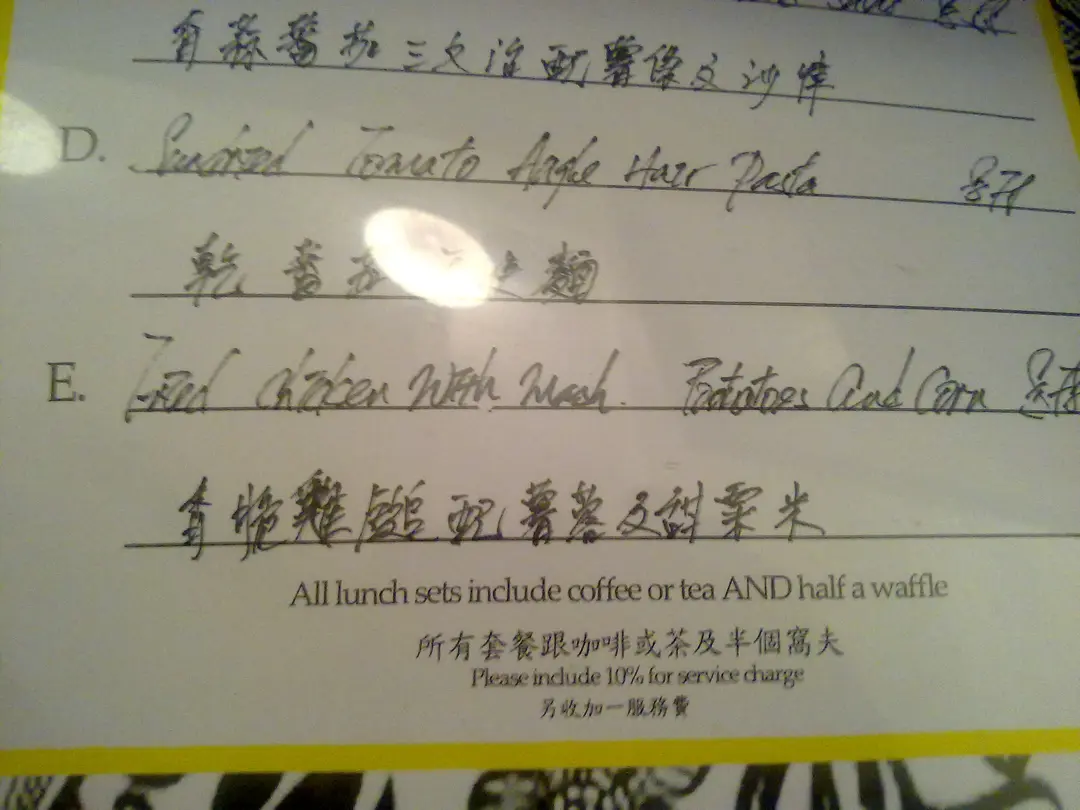 香蒜蕃茄三文治配薯條及沙律
D. Sundried Tomato Angle Hair Pasta $71
乾蕃茄 麵
E. Fried Chicken With Mash. Potatoes And Corn
香脆雞 配薯蓉及甜粟米
All lunch sets include coffee or tea AND half a waffle
所有套餐跟咖啡或茶及半個窩夫
Please include 10% for service charge
另收加一服務費